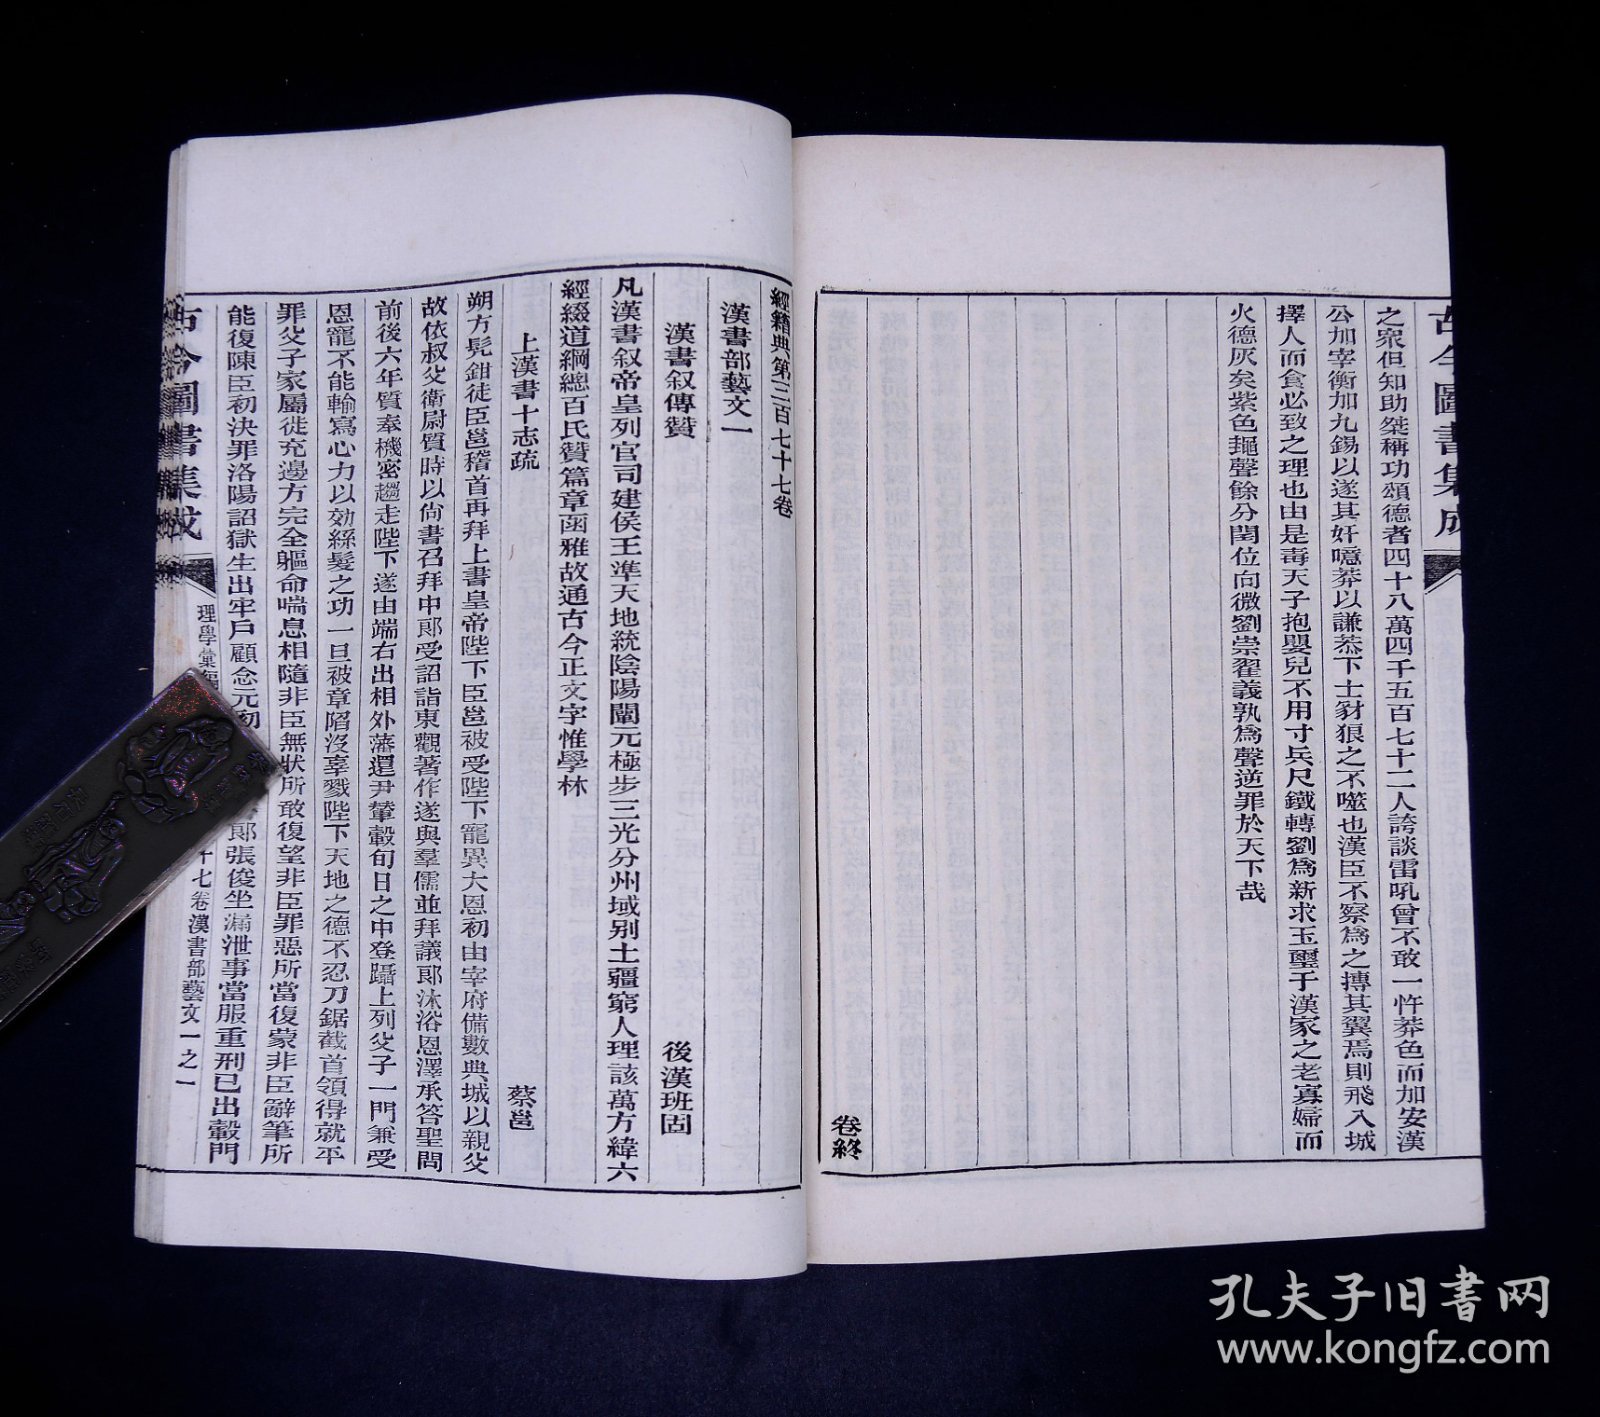 古今圖書集成
之衆但知助桀稱功頌德者四十八萬四千五百七十二人誇談雷吼曾不敢一忤莽色而加安漢
公加宰衡加九錫以遂其奸噫莽以謙恭下士豺狼之不噬也漢臣不察爲之搏其翼焉則飛入城
擇人而食必致之理也由是毒天子抱嬰兒不用寸兵尺鐵轉劉爲新求玉璽于漢家之老寡婦而
火德灰矣紫色䵷聲餘分閏位向微劉崇翟義孰爲聲逆罪於天下哉
卷終
經籍典第三百七十七卷
漢書部藝文一
漢書叙傳贊 後漢班固
凡漢書叙帝皇列官司建侯王準天地統陰陽闡元極步三光分州域别土疆窮人理該萬方緯六
經綴道綱總百氏贊篇章函雅故通古今正文字惟學林
上漢書十志疏 蔡邕
朔方髡鉗徒臣邕稽首再拜上書皇帝陛下臣邕被受陛下寵異大恩初由宰府備數典城以親父
故依叔父衛尉質時以尙書召拜中郞受詔詣東觀著作遂與羣儒並拜議郞沐浴恩澤承答聖問
前後六年質奉機密趨走陛下遂由端右出相外藩還尹輦轂旬日之中登躡上列父子一門兼受
恩寵不能輸寫心力以効絲髮之功一旦被章陷沒辜戮陛下天地之德不忍刀鋸截首領得就平
罪父子家屬徙充邊方完全軀命喘息相隨非臣無狀所敢復望非臣罪惡所當復蒙非臣辭筆所
能復陳臣初決罪洛陽詔獄生出牢戶顧念元初 郞張俊坐漏泄事當服重刑已出轂門
古今圖書集成
理學彙編 十七卷漢書部藝文一之一
孔夫子旧书网
www.kongfz.com